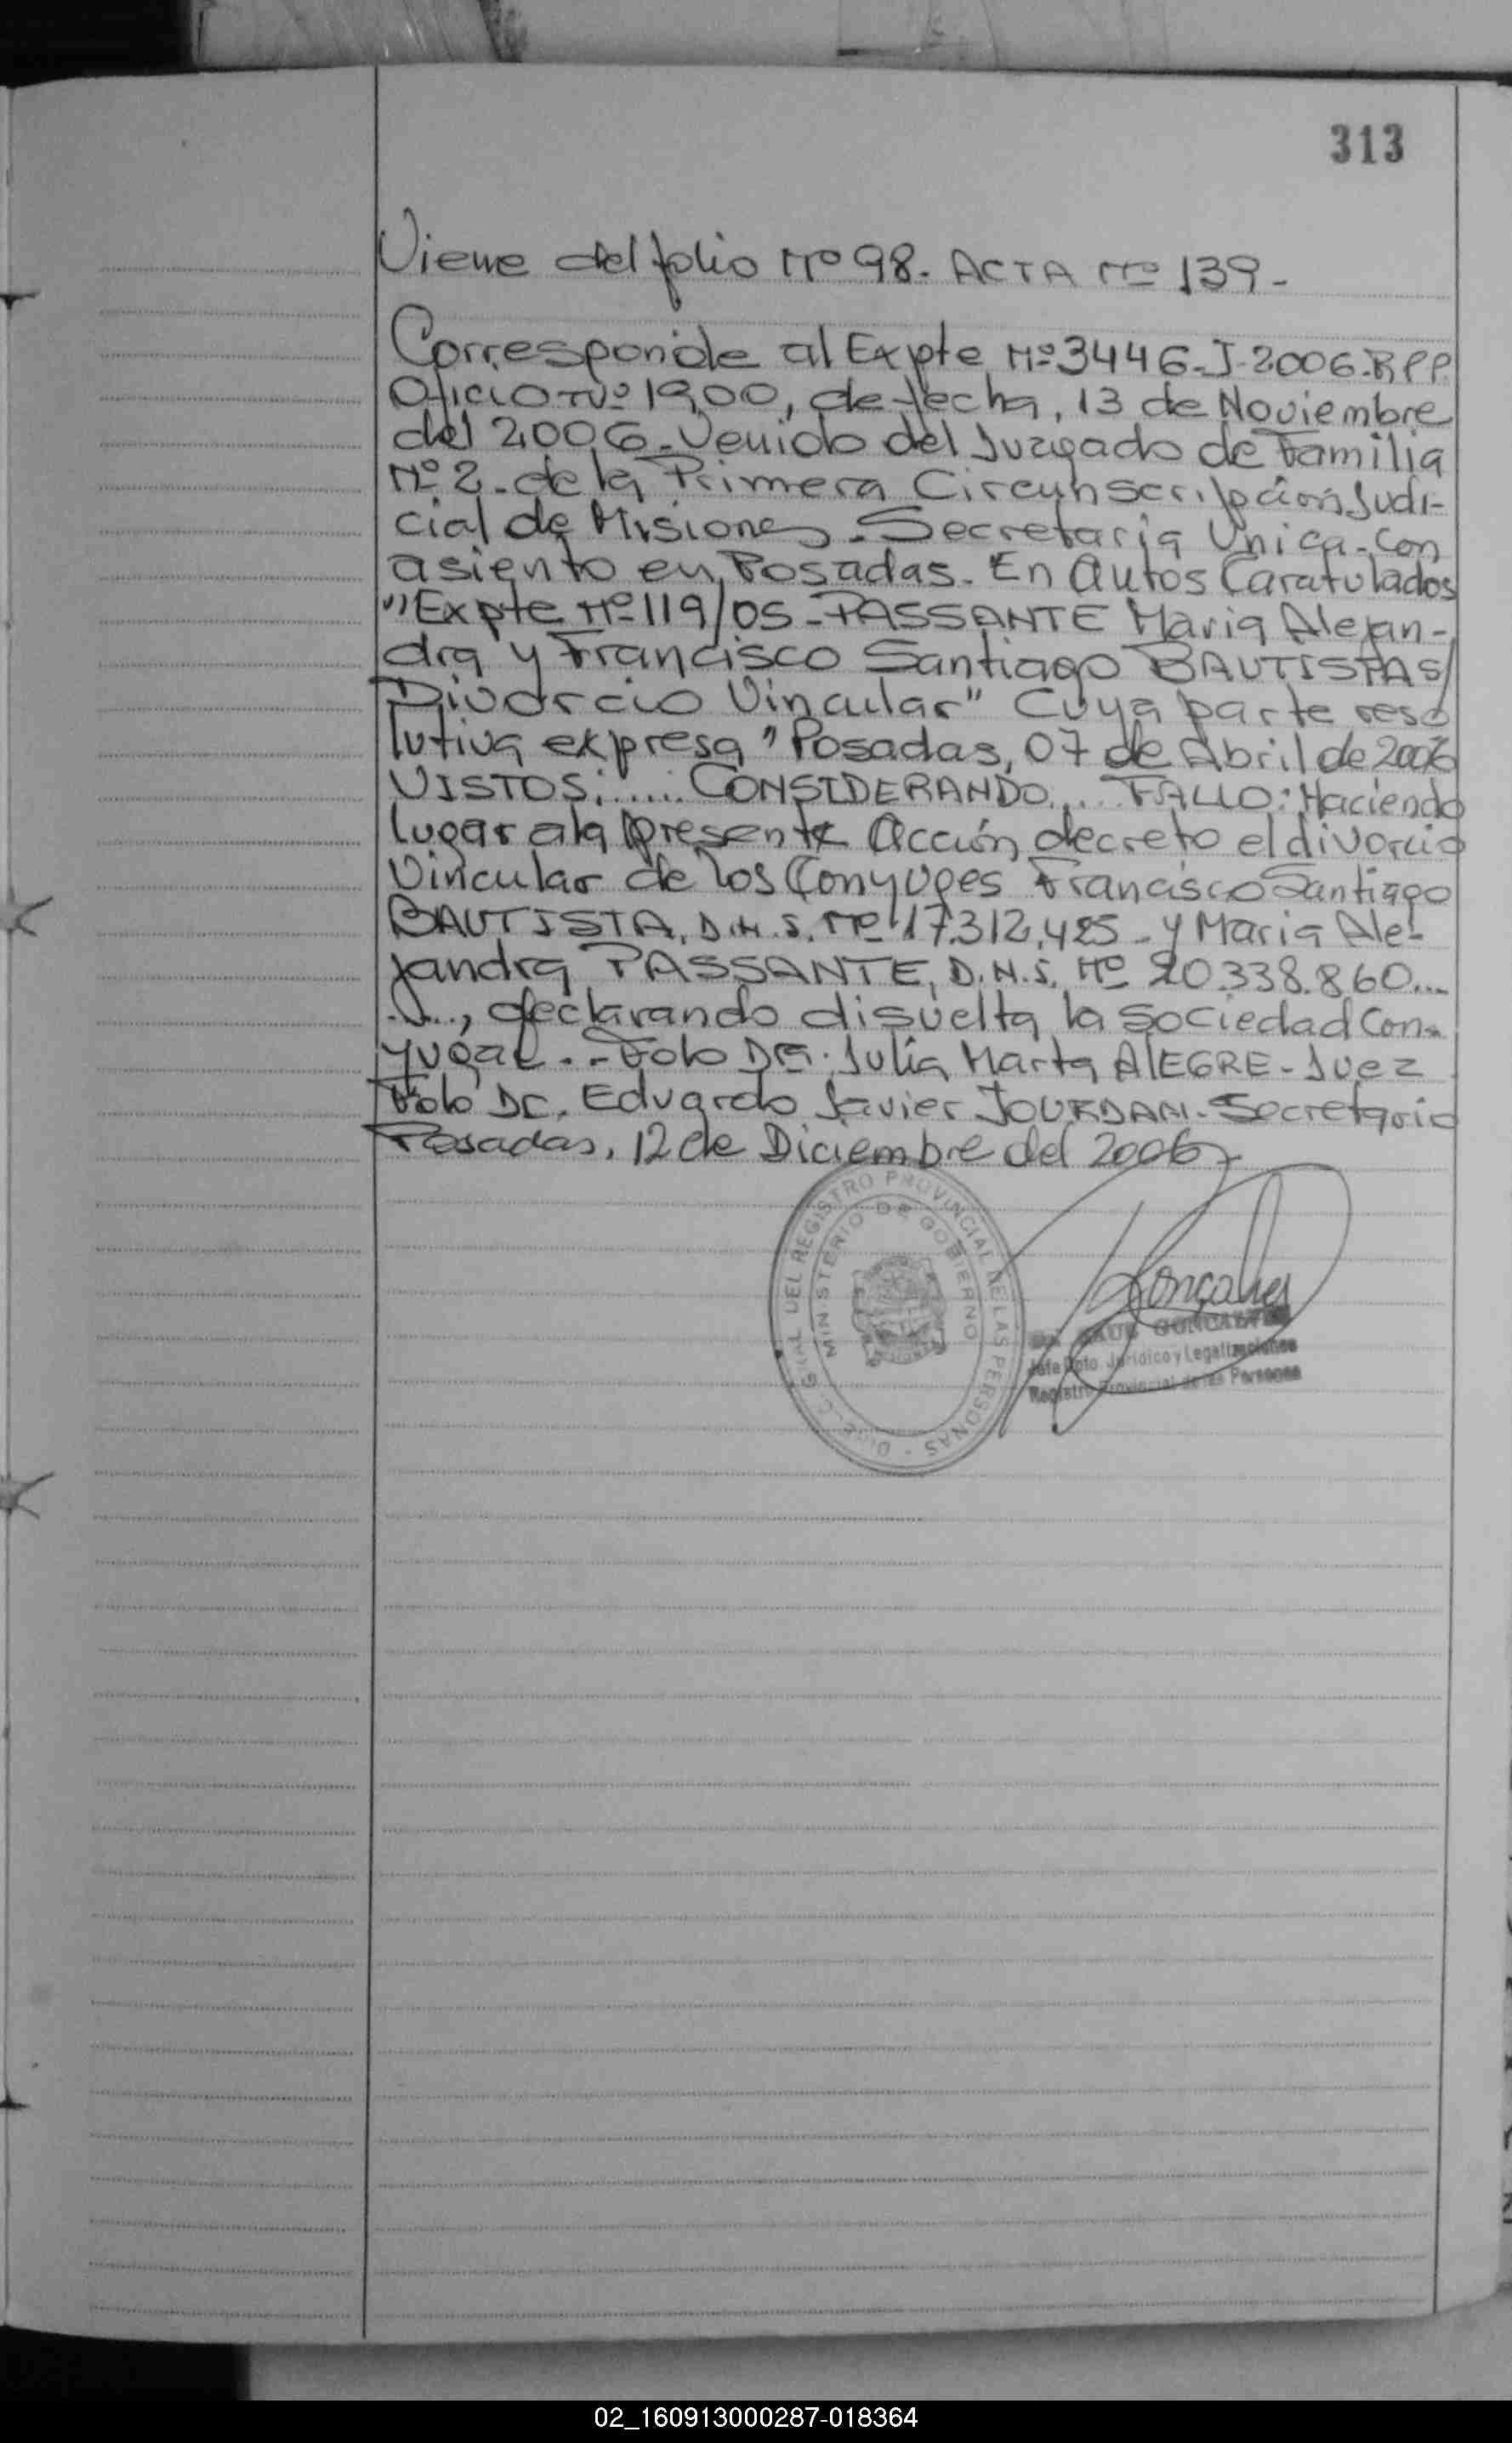 313
Viene del folio Nº 98. ACTA Nº 139-
Corresponde al Expte Nº 3446-J-2006-RPP.
Oficio Nº 1900, de fecha, 13 de Noviembre
del 2006-Venido del Juzgado de Familia
Nº 2-de la Primera Circunscripción Judi-
cial de Misiones. Secretaria Unica-con
asiento en Posadas. En Autos Caratulados
"Expte Nº 119/05-PASSANTE Maria Alejan-
dra y Francisco Santiago BAUTISTA S/
Divorcio Vincular" Cuya parte reso
lutiva expresa "Posadas, 07 de Abril de 2006
VISTOS:..... CONSIDERANDO.... FALLO: Haciendo
lugar a la presente Acción decreto el divorcio
Vincular de los Conyuges Francisco Santiago
BAUTISTA, D.N.I. Nº 17.312.425-y Maria Ale-
jandra PASSANTE, D.N.I. Nº 20.338.860...
...., declarando disuelta la Sociedad Con-
yugal..-Fdo Dra. Julia Marta ALEGRE-Juez
Fdo Dr. Eduardo Javier JOURDAN-Secretario
Posadas, 12 de Diciembre del 2006
GRAL DEL REGISTRO PROVINCIAL DE LAS PERSONAS -
MINISTERIO DE GOBIERNO
Gonçalves
GONCALVES
Jefe Dpto. Jurídico y Legalizaciones
Registro Provincial de las Personas
02_160913000287-018364